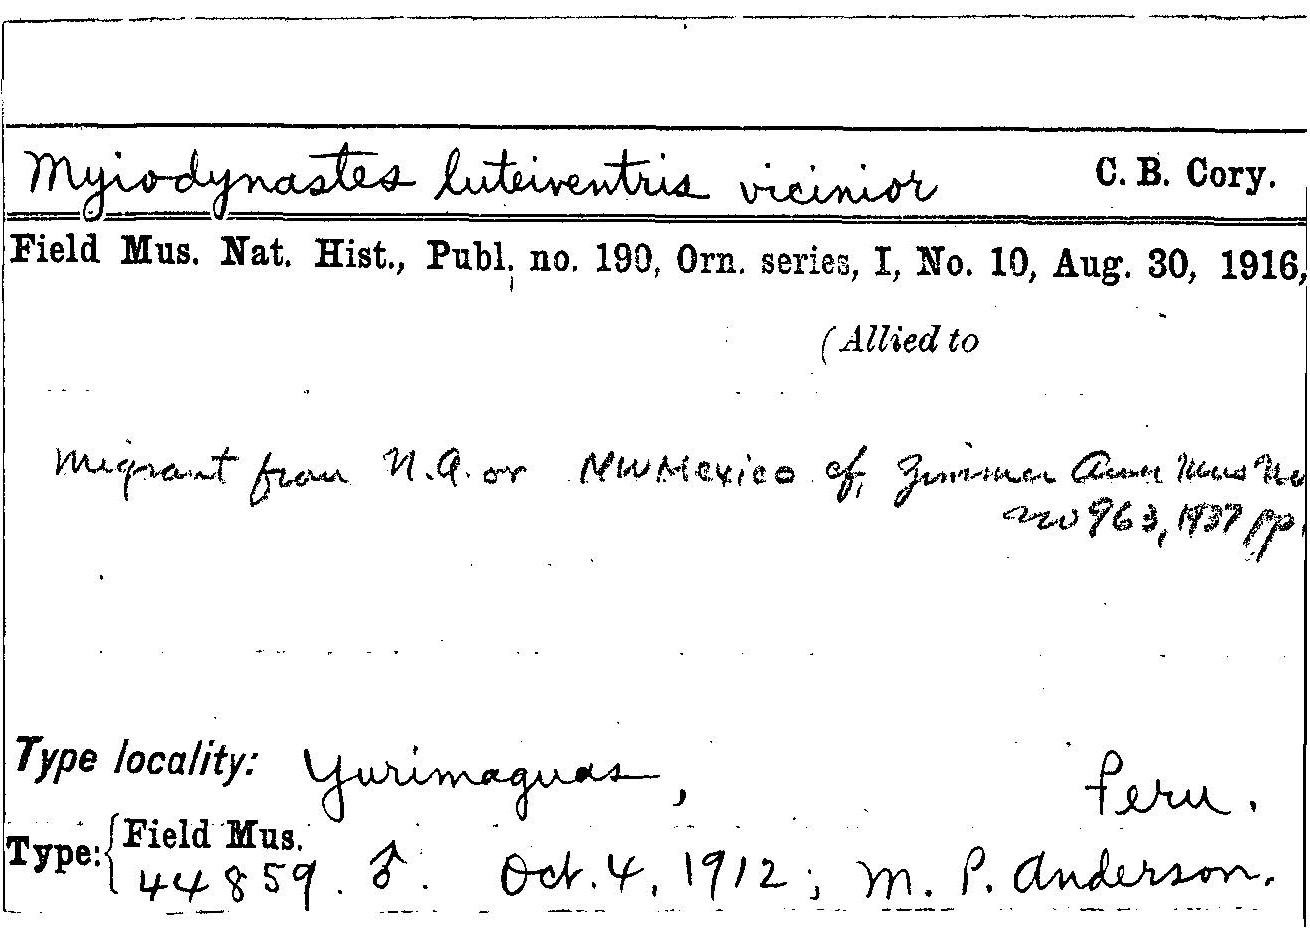 Myiodynastes luteiventris vicinior C. B. Cory.
Field Mus. Nat. Hist., Publ. no. 190, Orn. series, I, No. 10, Aug. 30, 1916,
(Allied to
Migrant from N.A. or NW Mexico cf. Zimmer Amer Mus No
no 963, 1937 pp.
Type locality: Yurimaguas, Peru.
Type: { Field Mus.
44859. ♂. Oct. 4, 1912; M. P. Anderson.